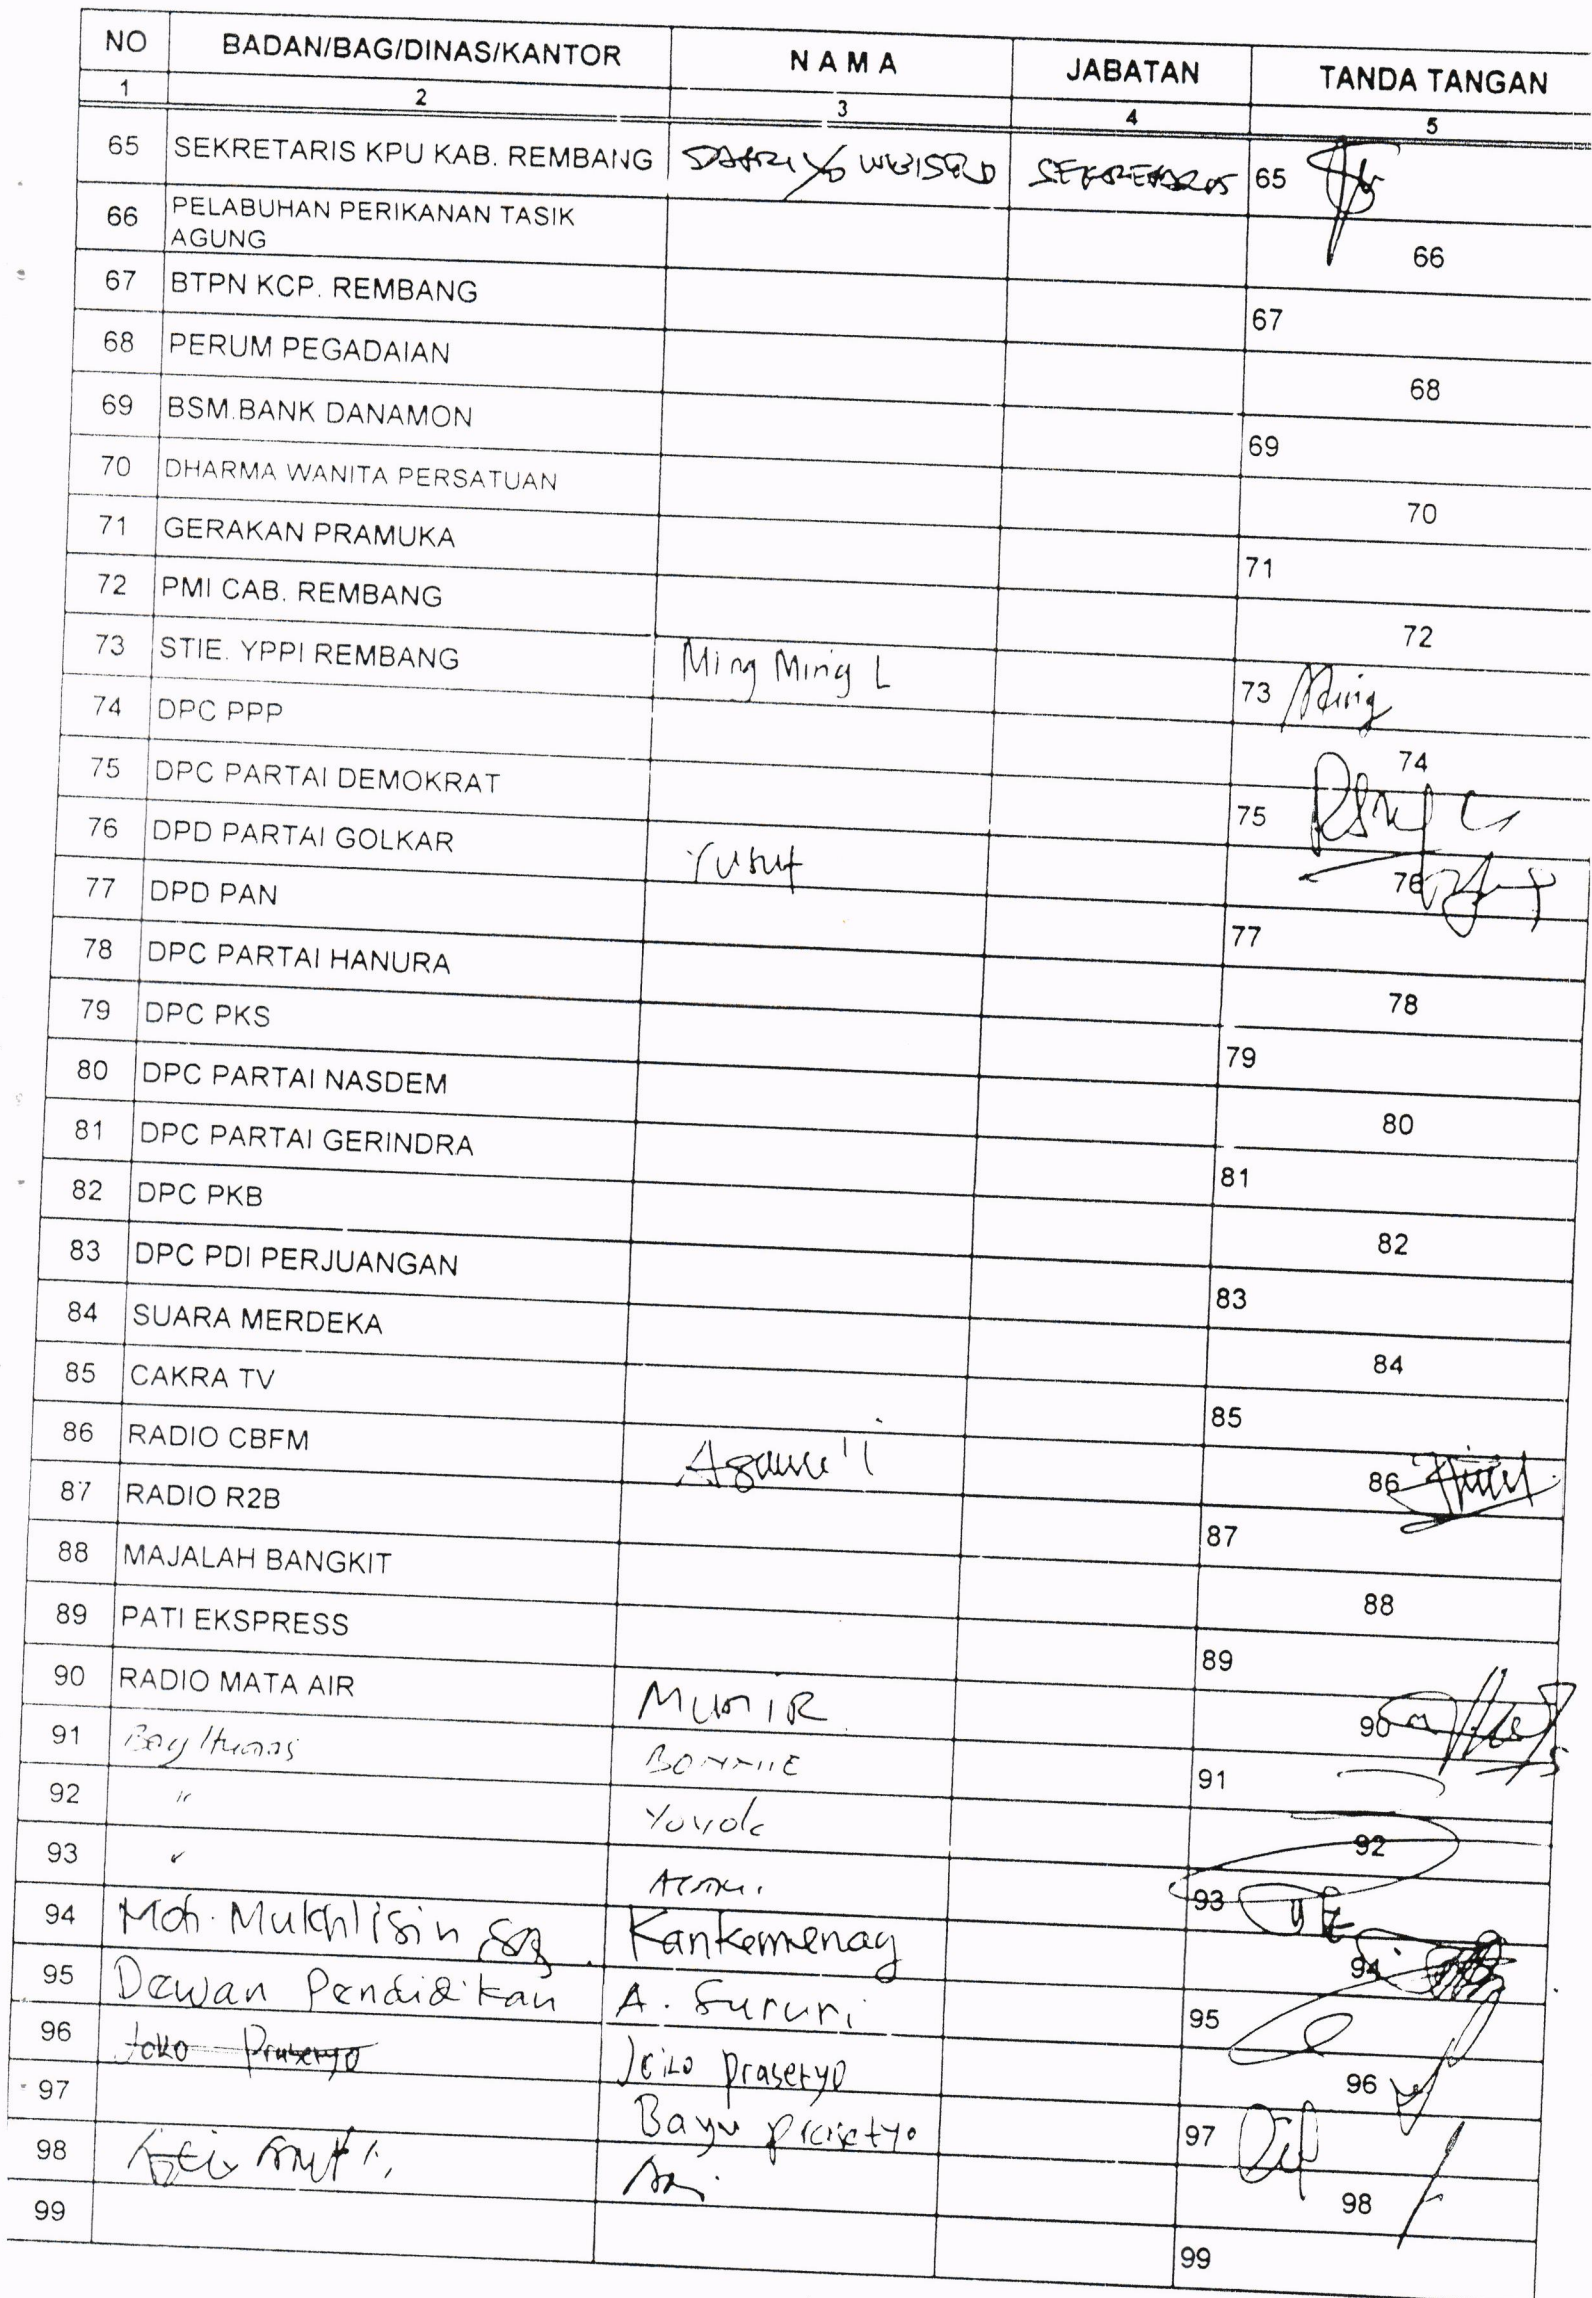 NO BADAN/BAG/DINAS/KANTOR N A M A JABATAN TANDA TANGAN
1 2 3 4 5
65 SEKRETARIS KPU KAB. REMBANG 65
66 PELABUHAN PERIKANAN TASIK
AGUNG 66
67 BTPN KCP. REMBANG 67
68 PERUM PEGADAIAN 68
69 BSM.BANK DANAMON 69
70 DHARMA WANITA PERSATUAN 70
71 GERAKAN PRAMUKA 71
72 PMI CAB. REMBANG 72
73 STIE. YPPI REMBANG Ming Ming L 73 Ming
74 DPC PPP 74
75 DPC PARTAI DEMOKRAT 75
76 DPD PARTAI GOLKAR Yusuf 76
77 DPD PAN 77
78 DPC PARTAI HANURA 78
79 DPC PKS 79
80 DPC PARTAI NASDEM 80
81 DPC PARTAI GERINDRA 81
82 DPC PKB 82
83 DPC PDI PERJUANGAN 83
84 SUARA MERDEKA 84
85 CAKRA TV 85
86 RADIO CBFM 86
87 RADIO R2B 87
88 MAJALAH BANGKIT 88
89 PATI EKSPRESS 89
90 RADIO MATA AIR MUNIR 90
91 Bag Humas 91
92 " Yoyok 92
93 " 93
94 Moh. Mukhlisin Kankemenag 94
95 Dewan Pendidikan A. Sururi 95
96 Joko Prasetyo Joko Prasetyo 96
97 Bayu Prasetyo 97
98 Ari 98
99 99